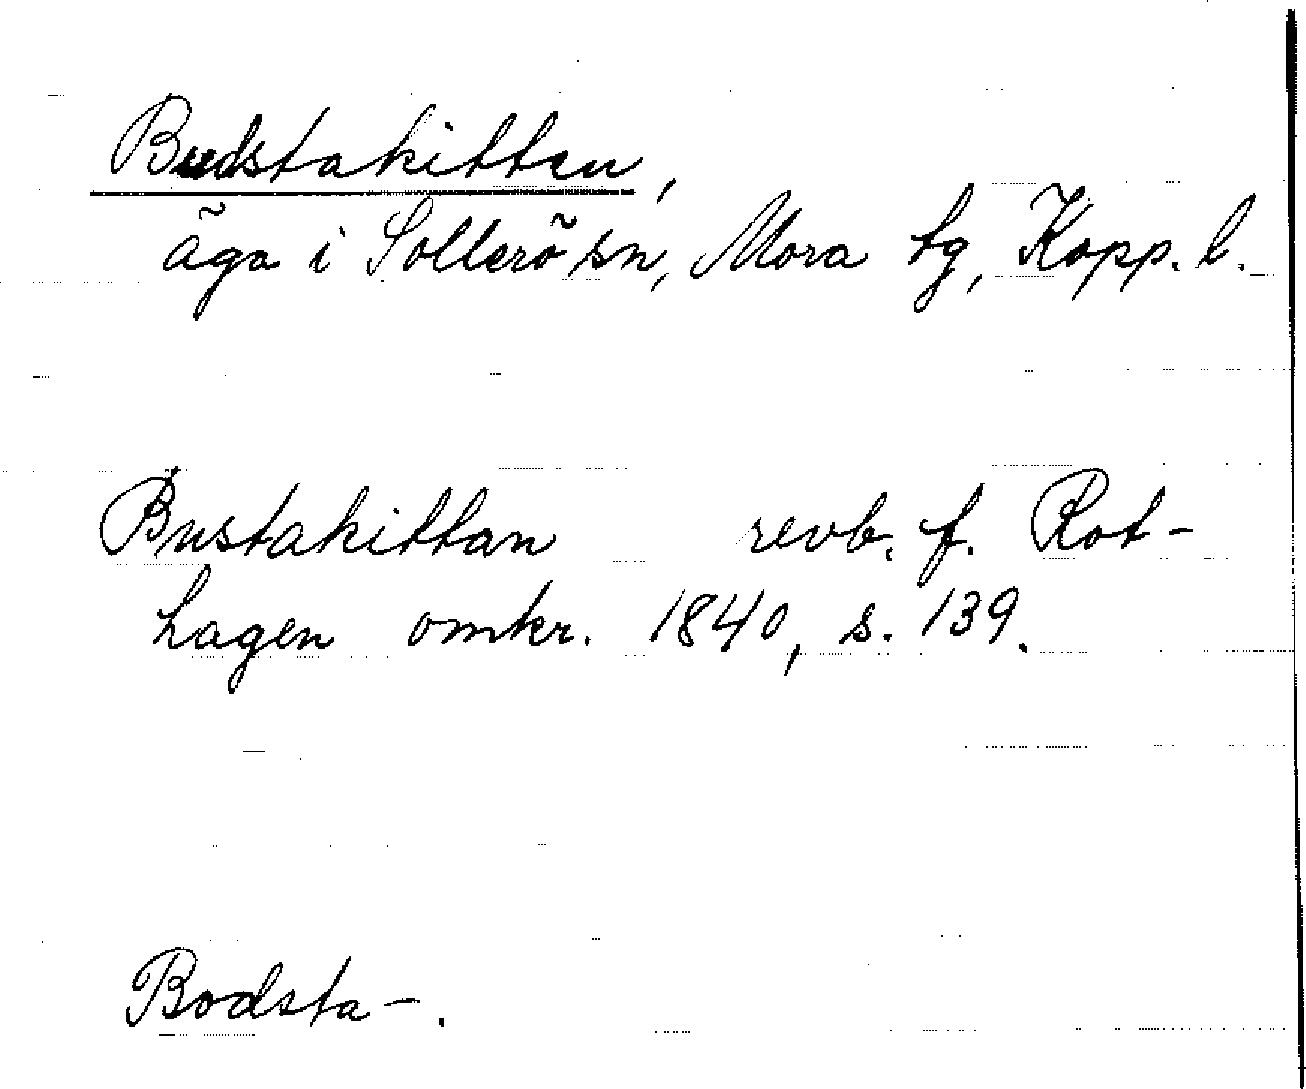 Budstakitten,
äga i Sollerö sn, Mora tg, Kopp. l.
Bustakittan revb. f. Rot-
hagen omkr. 1840, s. 139.
Bodsta-.